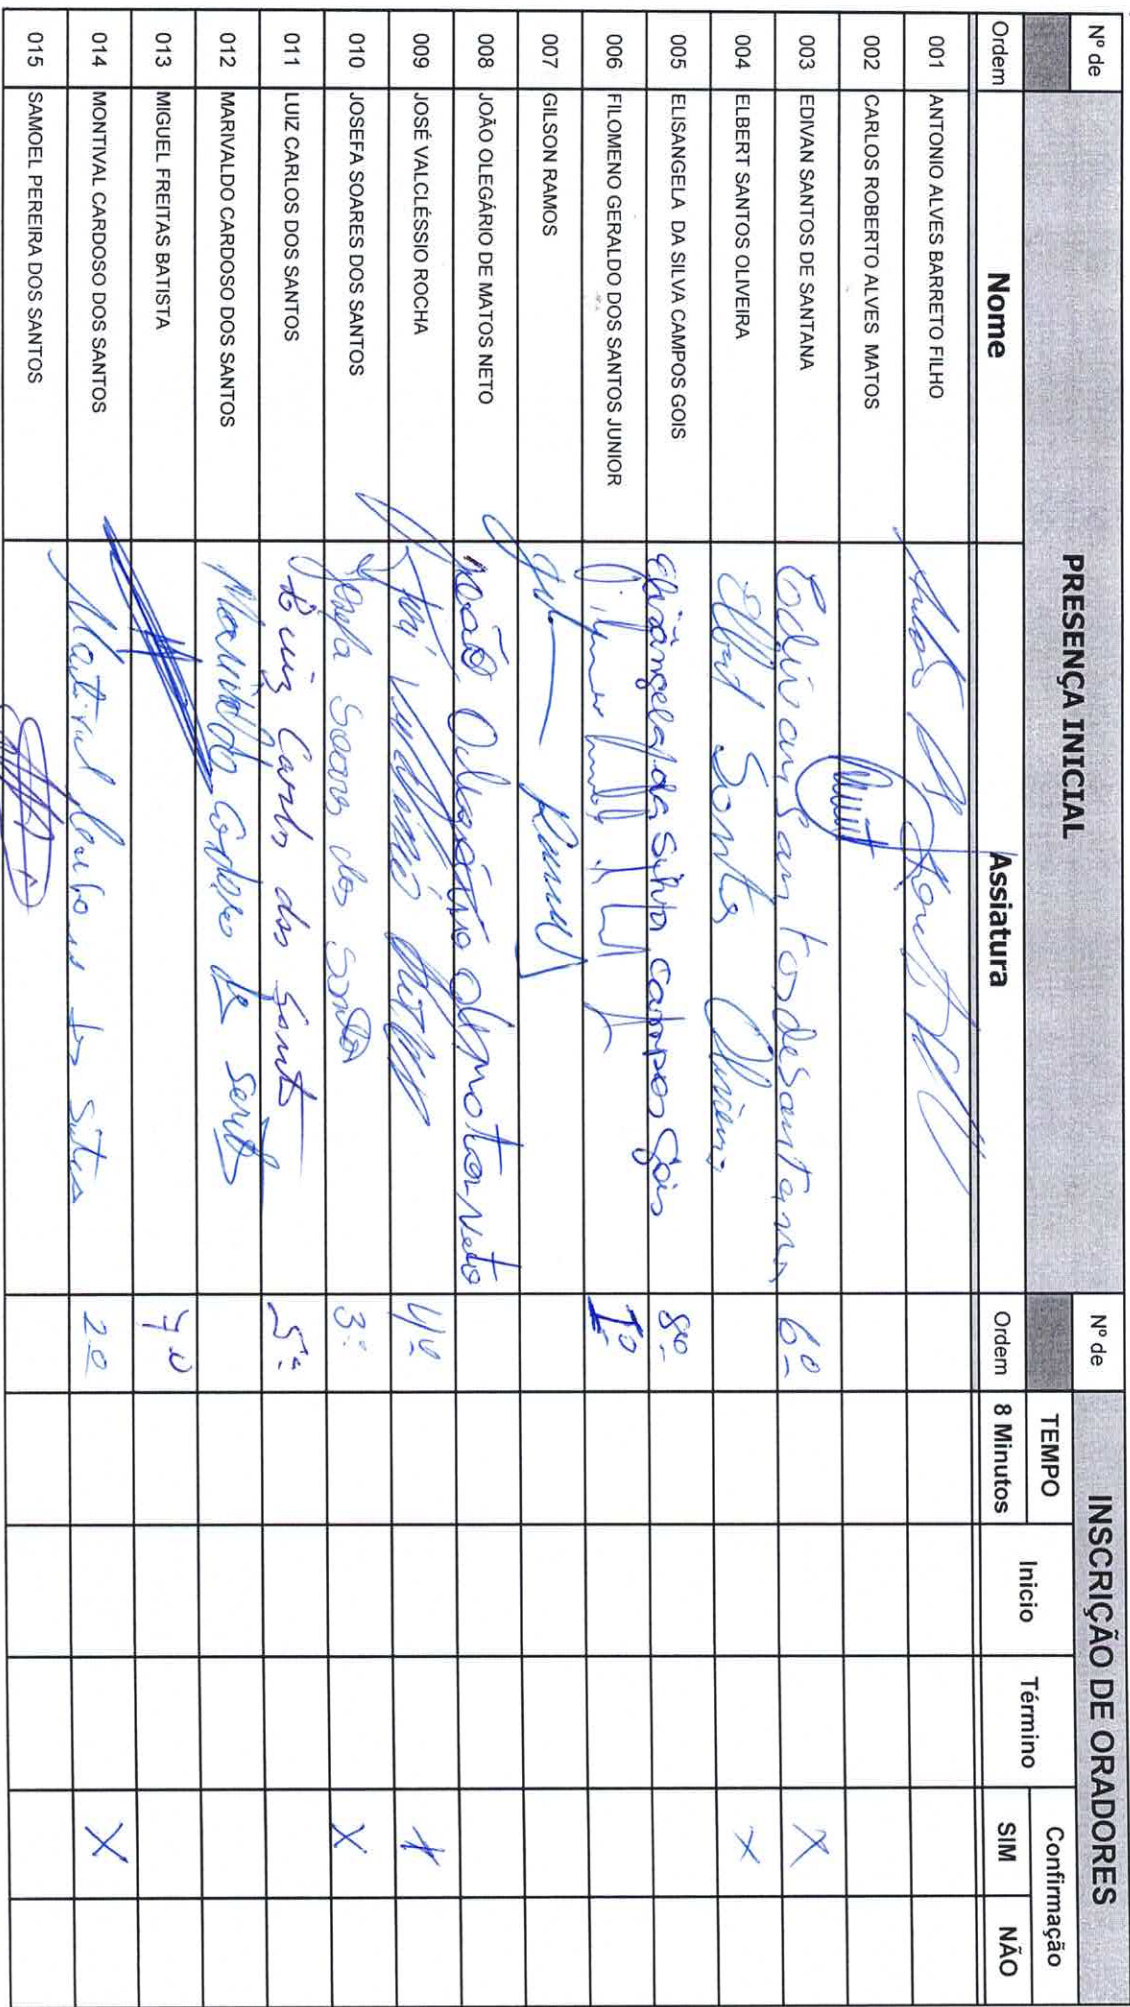 PRESENÇA INICIAL
INSCRIÇÃO DE ORADORES
Nº de Ordem
Nome
Assiatura
Nº de Ordem
TEMPO
8 Minutos
Inicio
Término
Confirmação
SIM
NÃO
001 ANTONIO ALVES BARRETO FILHO
002 CARLOS ROBERTO ALVES MATOS
003 EDIVAN SANTOS DE SANTANA Edivan Santos de Santana 6º X
004 ELBERT SANTOS OLIVEIRA Elbert Santos Oliveira X
005 ELISANGELA DA SILVA CAMPOS GOIS Elisângela da Silva Campos Gois 8º
006 FILOMENO GERALDO DOS SANTOS JUNIOR 1º
007 GILSON RAMOS
008 JOÃO OLEGÁRIO DE MATOS NETO João Olegário de Matos Neto
009 JOSÉ VALCLÉSSIO ROCHA 4º X
010 JOSEFA SOARES DOS SANTOS Josefa Soares dos Santos 3º X
011 LUIZ CARLOS DOS SANTOS Luiz Carlos dos Santos 5º
012 MARIVALDO CARDOSO DOS SANTOS Marivaldo Cardoso dos Santos
013 MIGUEL FREITAS BATISTA 7º
014 MONTIVAL CARDOSO DOS SANTOS Montival Cardoso dos Santos 2º X
015 SAMOEL PEREIRA DOS SANTOS